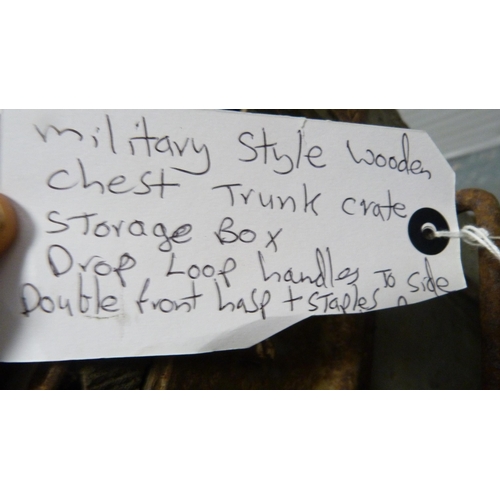 military Style Wooden
Chest Trunk crate
Storage Box
Drop Loop handles To side
Double front hasp + staples